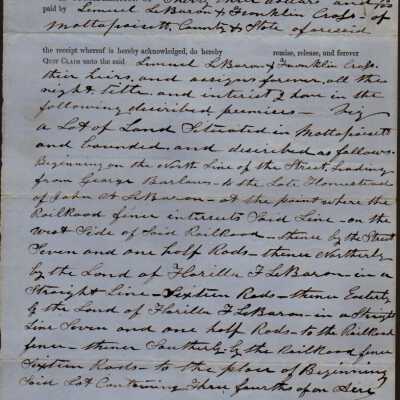 Thirty three dollars and
paid by Lemuel LeBaron & Franklin Cross - of
Mattapoisett, County & State aforesaid
the receipt whereof is hereby acknowledged, do hereby remise, release, and forever
Quit Claim unto the said Lemuel LeBaron & Franklin Cross
their heirs, and assigns forever, all the
right, title and interest I have in the
following discribed premises - Viz
a Lot of Land Situated in Mattapoisett
and bounded and discribed as follows.
Beginning on the North Line of the Street, Leading
from George Barlows - to the Late Homestead
of John A LeBaron - at the point where the
Railroad fence intersects Said Line - on the
West Side of Said Railroad - thence by the Street
Seven and one half Rods - thence Northerly
by the Land of Florilla F LeBaron - in a
Straight Line - Sixteen Rods - thence Easterly
by the Land of Florilla F LeBaron - in a Straight
Line Seven and one half Rods - to the Railroad
fence - thence Southerly by the Railroad fence
Sixteen Rods - to the place of Beginning
Said Lot Containing Three fourths of an Acre